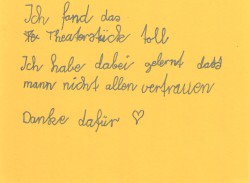 Ich fand das
Theaterstück toll
Ich habe dabei gelernt dass
mann nicht allen vertrauen
Danke dafür ♡